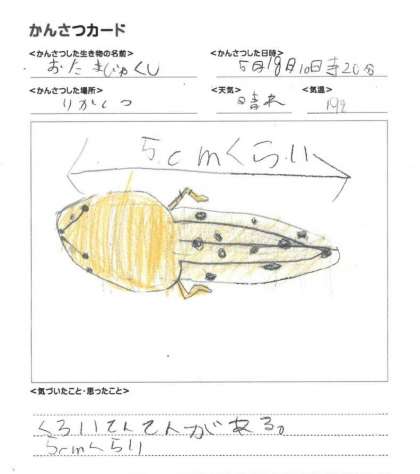 かんさつカード
<かんさつした生き物の名前>
おたまじゃくし
<かんさつした日時>
5月19日10日寺20分
<かんさつした場所>
りかしつ
<天気>
晴れ
<気温>
19℃
5cmくらい
<気づいたこと・思ったこと>
くろいてんてんがある。
5cmくらい